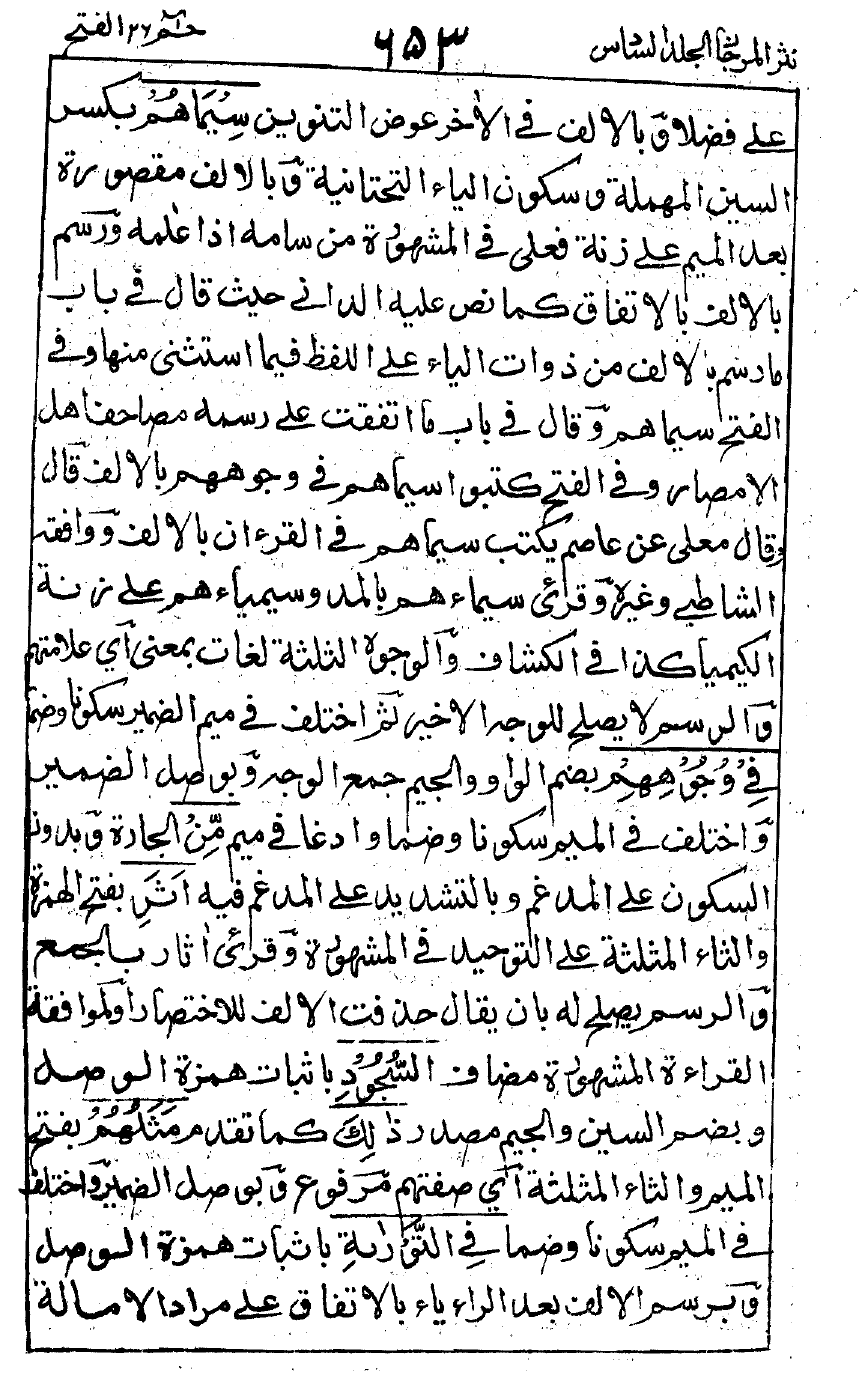 نثر المرجان المجلد السادس ٦٥٣ حٰم ٢٦ الفتح
على فضلا وَبالالف فى الاٰخر عوض التنوين سِيْمَاهُمْ بكسر
السين المهملة وسكون الياء التحتانية وَبالالف مقصورة
بعد الميم على زنة فعلى فى المشهورة من سامه اذا علمه وَرسم
بالالف بالاتفاق كما نص عليه الدانى حيث قال فى باب
ما رسم بالالف من ذوات الياء على اللفظ فيما استثنى منها وفى
الفتح سيماهم وَقال فى باب ما اتفقت على رسمه مصاحف اهل
الامصار وفى الفتح كتبوا سيماهم فى وجوههم بالالف قَال
وقال معلى عن عاصم يكتب سيماهم فى القرءان بالالف وَوافقه
الشاطبى وغيره وَقرئ سيماءهم بالمد وسيمياءهم على زنة
الكيميا كذا فى الكشاف وَالوجوه الثلثة لغات بمعنى اَي علامتهم
وَالرسم لا يصلح للوجه الاخير ثَم اختلف فى ميم الضمير سكونا وضما
فِىْ وُجُوْهِهِمْ بضم الواو والجيم جمع الوجه وَبوصل الضمير
وَاختلف فى الميم سكونا وضما وادغا فى ميم مِّنْ الجارة وَبدون
السكون على المدغم وبالتشديد على المدغم فيه اَثَرِ بفتح الهمزة
والثاء المثلثة على التوحيد فى المشهورة وَقرئ اٰثار بالجمع
وَالرسم يصلح له بان يقال حذفت الالف للاختصار اَولموافقة
القراءة المشهورة مضاف السُّجُوْدِ باثبات همزة الوصل
وبضم السين والجيم مصدر ذٰلِكَ كما تقدم مَثَلُهُمْ بفتح
الميم والثاء المثلثة اَي صفتهم مَرفوع وَبوصل الضمير وَاختلف
فى الميم سكونا وضما فِى التَّوْرٰىةِ باثبات همزة الوصل
وَبرسم الالف بعد الراء ياء بالاتفاق على مراد الامالة